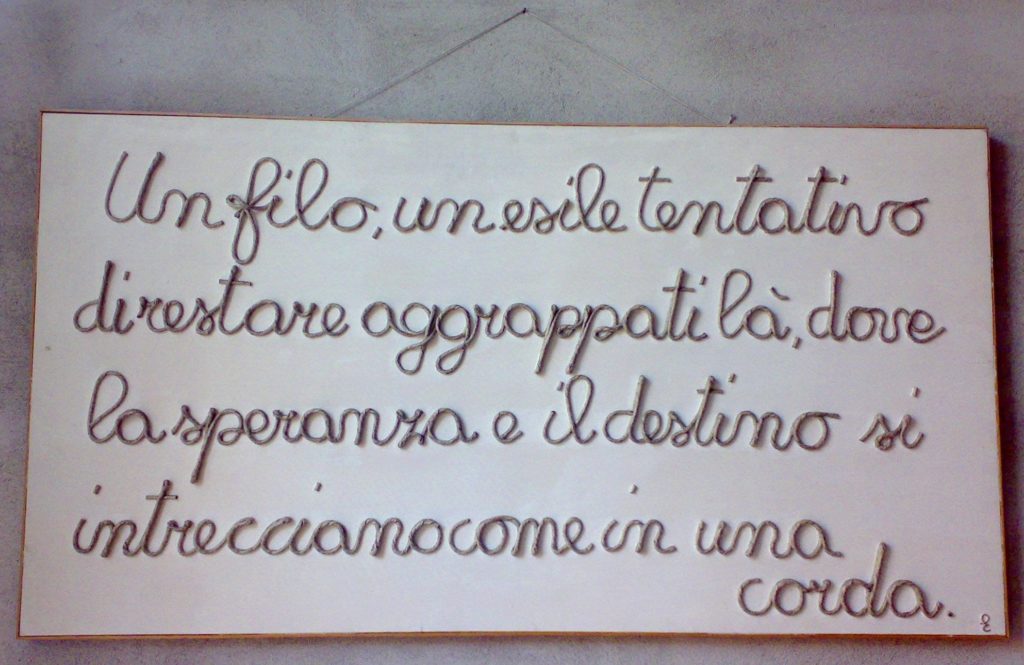 Un filo, un esile tentativo
di restare aggrappati là, dove
la speranza e il destino si
intrecciano come in una
corda.